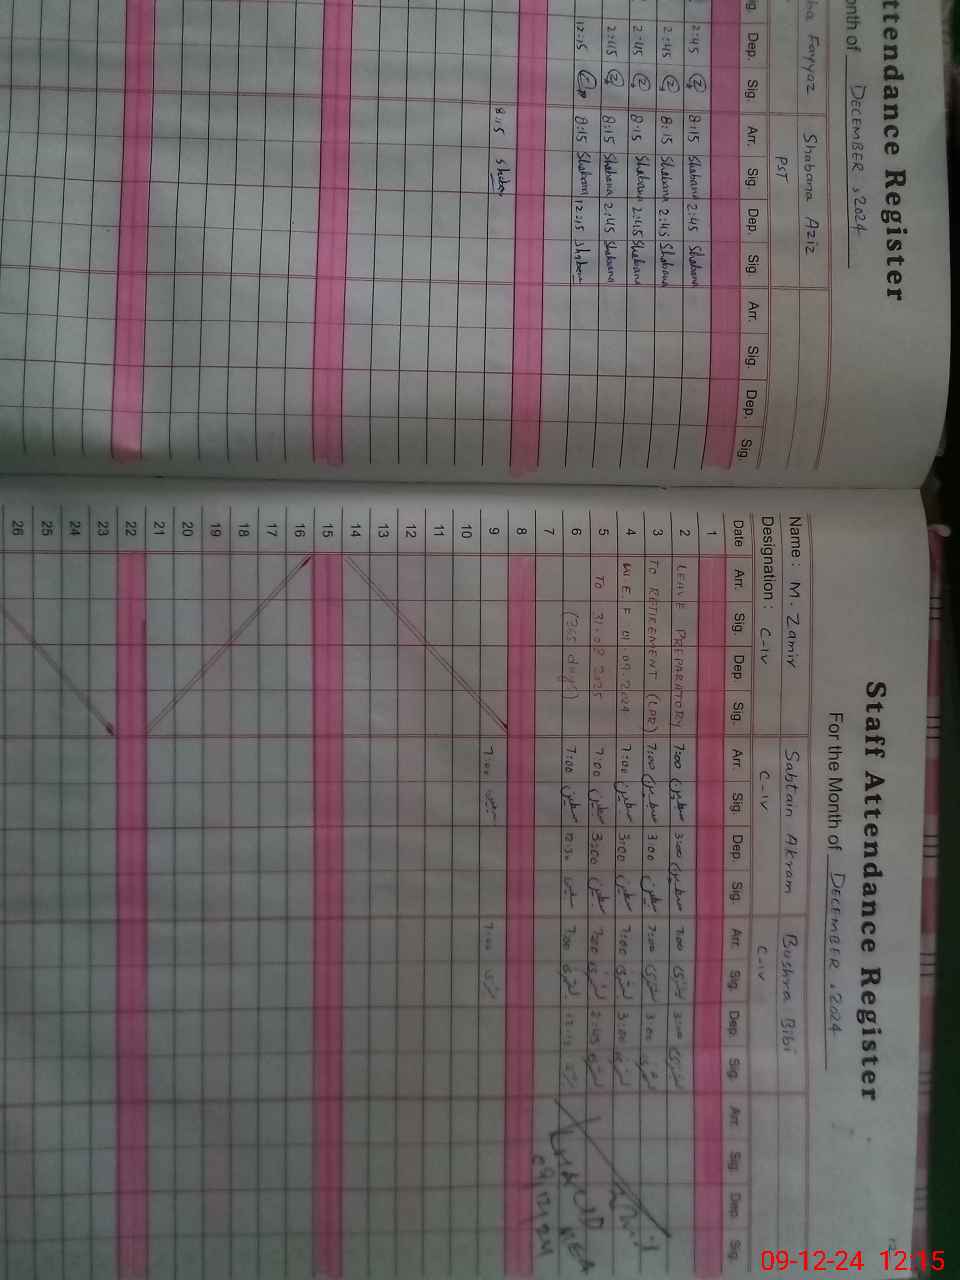 ttendance Register
onth of DECEMBER, 2024
ha Fayyaz Shabana Aziz
PST
ig. Dep. Sig. Arr. Sig. Dep. Sig. Arr. Sig. Dep. Sig.
2:45 8:15 Shabana 2:45 Shabana
2:45 8:15 Shabana 2:45 Shabana
2:45 8:15 Shabana 2:45 Shabana
2:45 8:15 Shabana 2:45 Shabana
12:15 8:15 Shabana 12:15 Shabana
8:15 Shabana
Staff Attendance Register
For the Month of DECEMBER, 2024
Name : M. Zamir Sabtain Akram Bushra Bibi
Designation : C-IV C-IV C-IV
Date Arr. Sig. Dep Sig. Arr. Sig. Dep. Sig. Arr. Sig. Dep. Sig. Arr. Sig. Dep. Sig.
1
2 LEAVE PREPARATORY 7:00 سبطین 3:00 سبطین 7:00 بشریٰ 3:00 بشریٰ
3 TO RETIREMENT (LPR) 7:00 سبطین 3:00 سبطین 7:00 بشریٰ 3:00 بشریٰ
4 W.E.F 01.09.2024 7:00 سبطین 3:00 سبطین 7:00 بشریٰ 3:00 بشریٰ
5 TO 31.08.2025 7:00 سبطین 3:00 سبطین 7:00 بشریٰ 2:45 بشریٰ
6 (365 days) 7:00 سبطین 12:30 سبطین 7:00 بشریٰ 12:15
7
8
9 7:00 7:00 بشریٰ
10
11
12
13
14
15
16
17
18
19
20
21
22
23
24
25
26
09/12/24
09-12-24 12:15